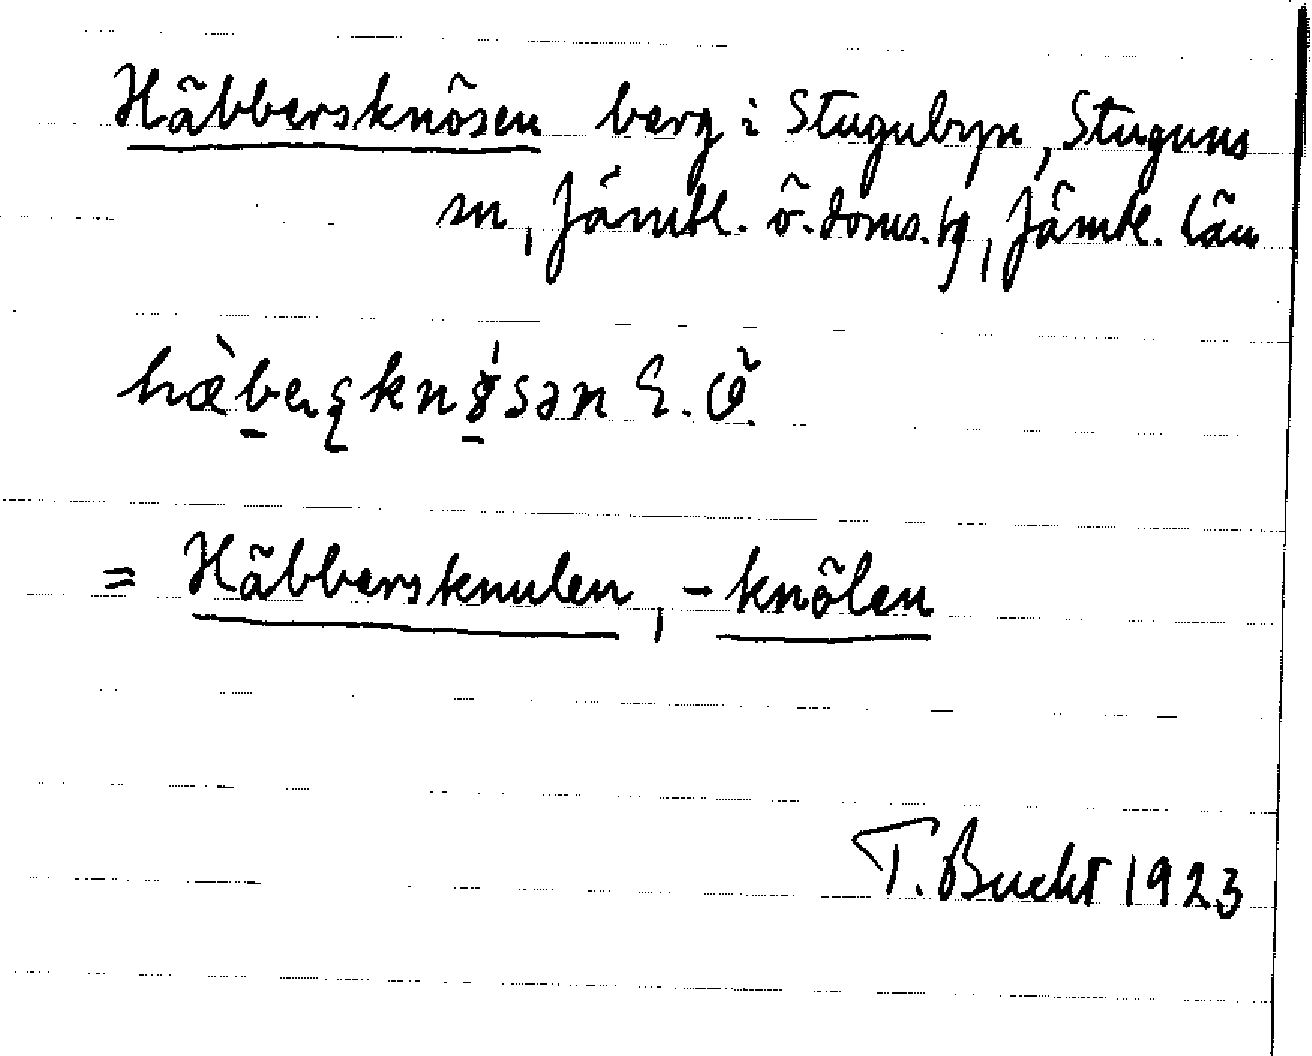 Häbbersknösen berg i Stugubyn, Stuguns
sn, Jämtl. ö. doms.hg, Jämtl. län
E. Ö.
= Häbbersknulen, -knölen
T. Bucht 1923